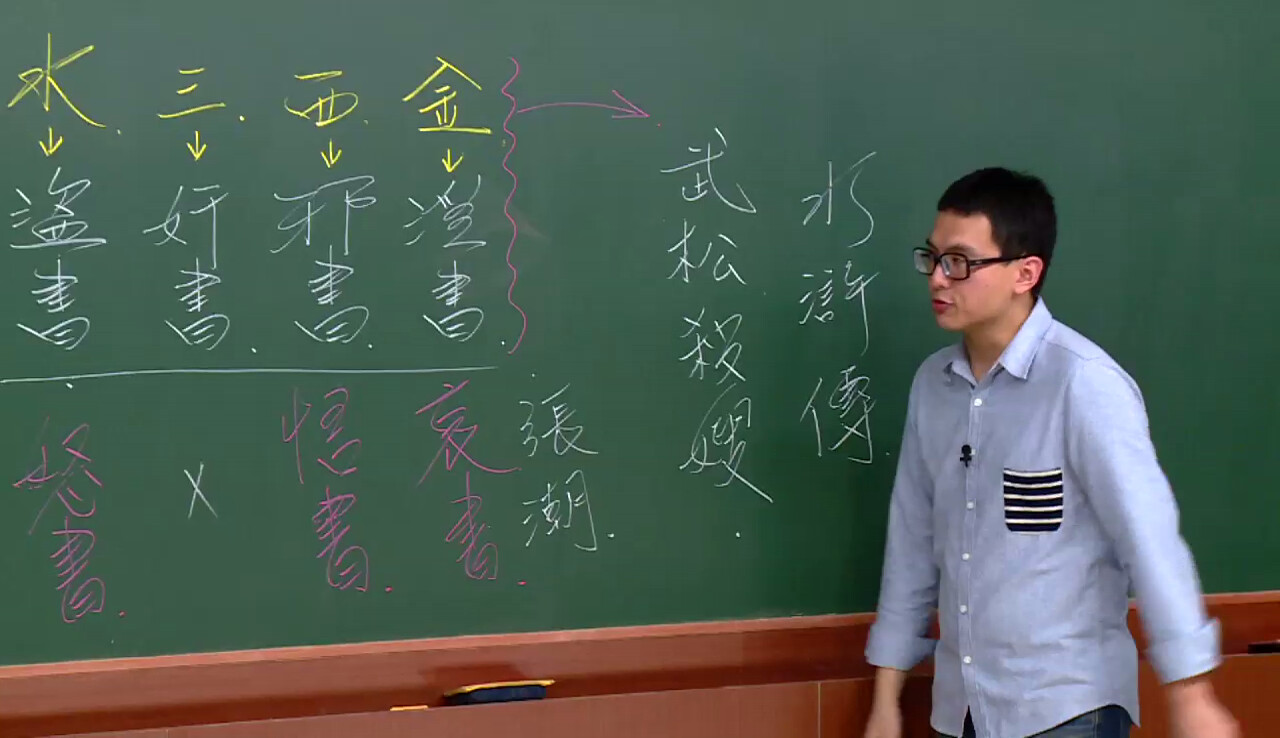 水 三 西 金
盜書 奸書 邪書 淫書
怒書 X 悟書 哀書
張潮
武松殺嫂
水滸傳